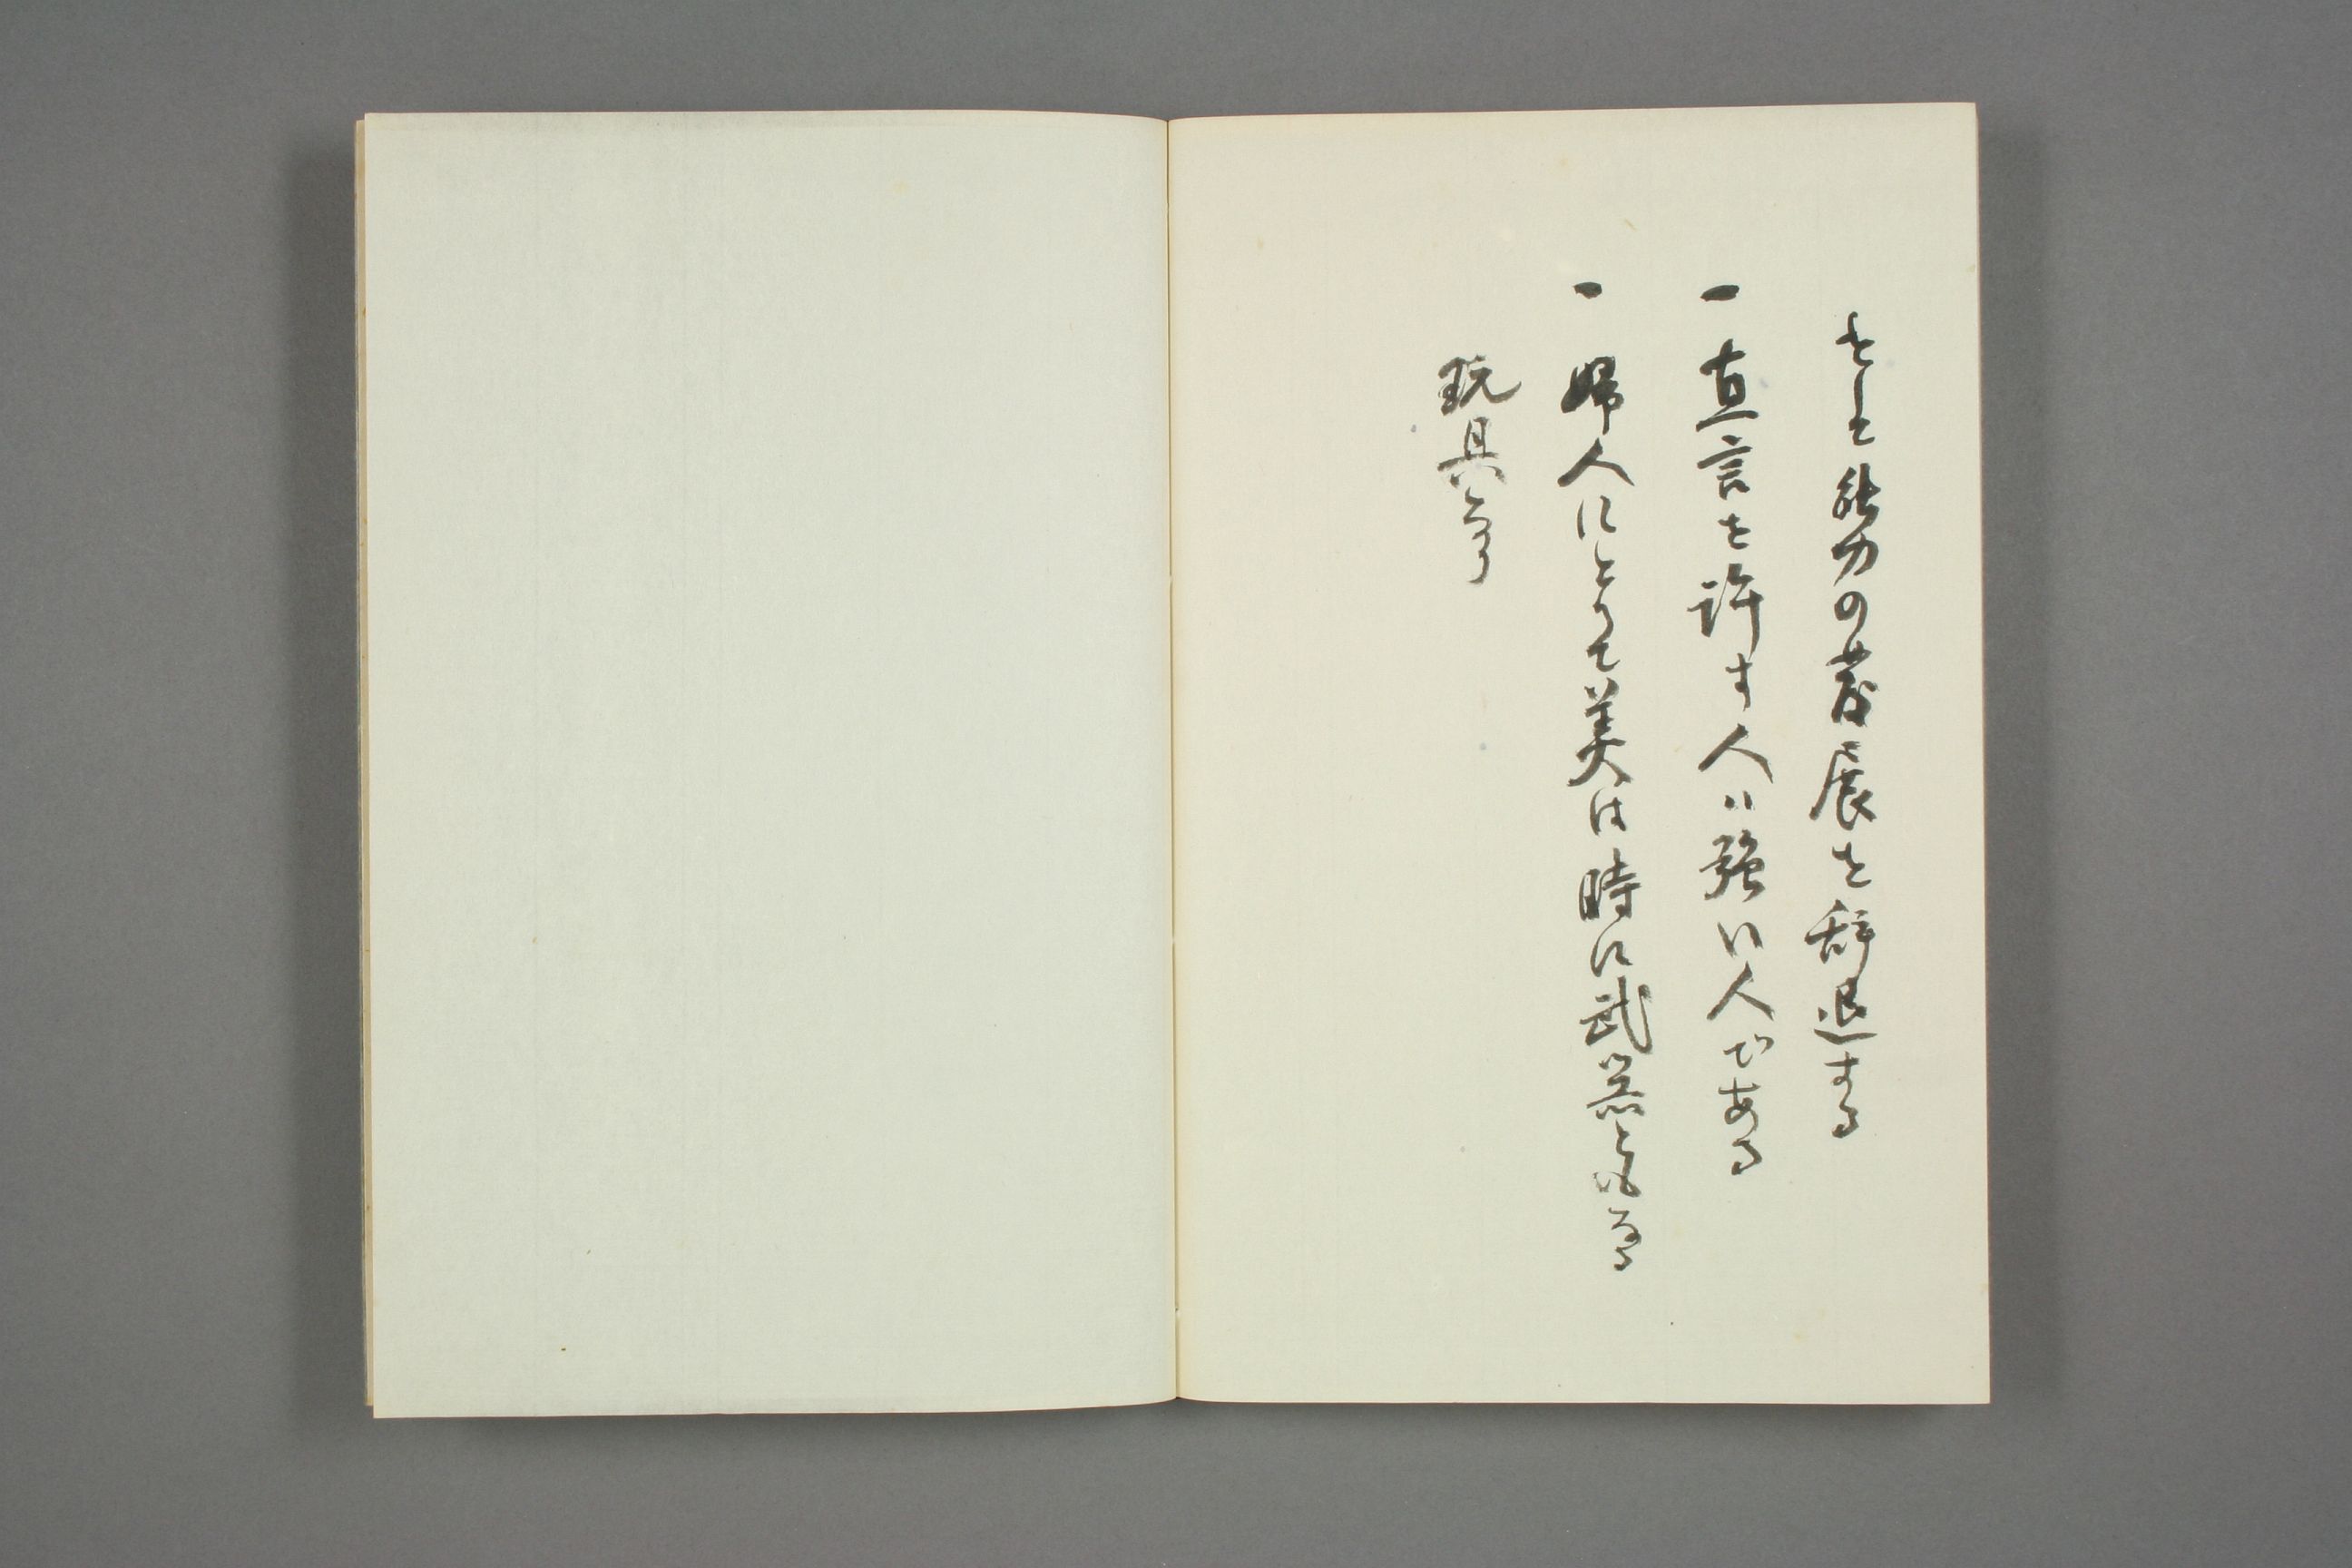 をして能力の発展を辞退する
一 直言を許す人は強い人である
一 婦人にとつて美は時に武器ともなる
玩具